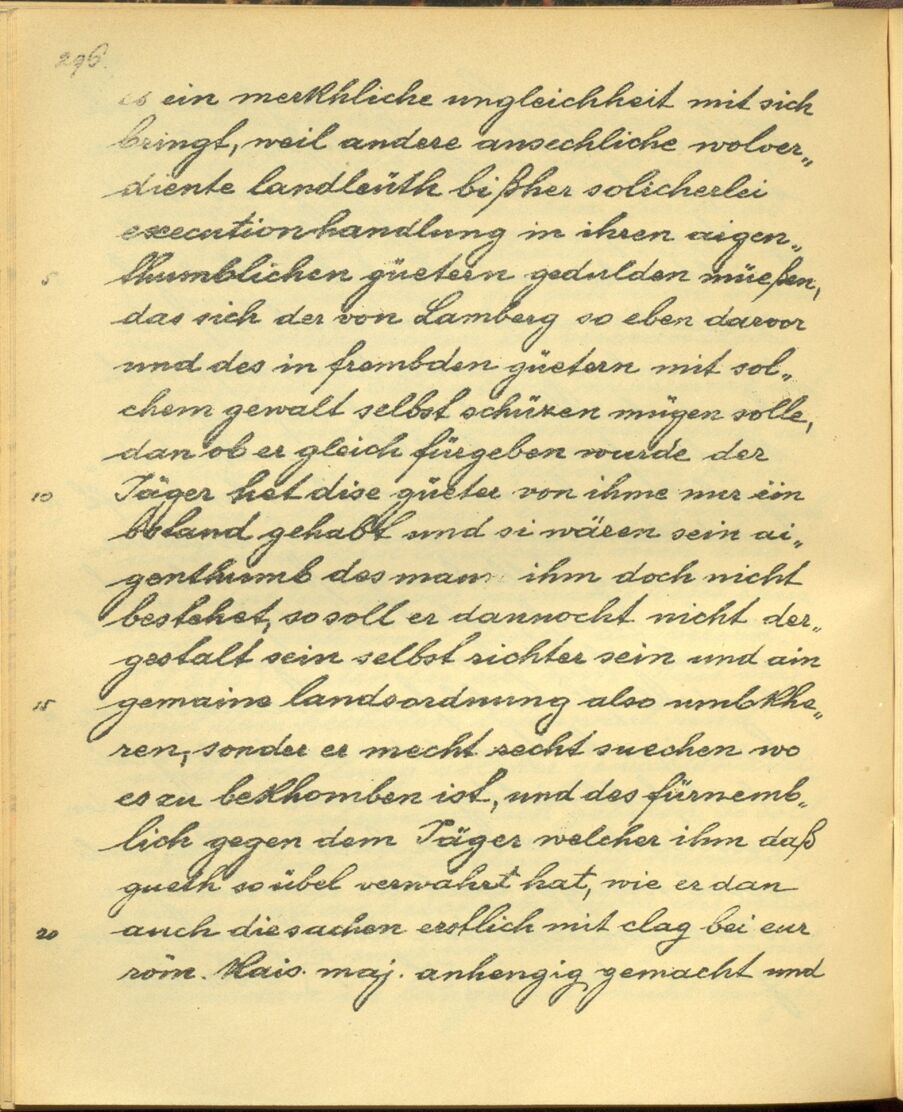 296.
es ein merkhliche ungleichheit mit sich
bringt, weil andere ansechliche wolver„
diente landleüth bißher solicherlei
execution handlung in ihren aigen„
5 thumblichen güetern gedulden müeßen,
das sich der von Lamberg so eben darvor
und des in frembden güetern mit sol„
chem gewalt selbst schüzen mügen solle,
dan ob er gleich fürgeben wurde der
10 Jäger het dise güeter von ihme nur ein
bstand gehabt und si wären sein ai„
genthumb des man ihm doch nicht
bestehet, so soll er dannocht nicht der„
gestalt sein selbst richter sein und ain
15 gemaine landsordnung also umbkhe„
ren, sonder er mecht recht suechen wo
es zu bekhomben ist, und des fürnemb„
lich gegen dem Jäger welcher ihm daß
gueth so übel verwahrt hat, wie er dan
20 auch die sachen erstlich mit clag bei eur
röm. Kais. maj. anhengig gemacht und